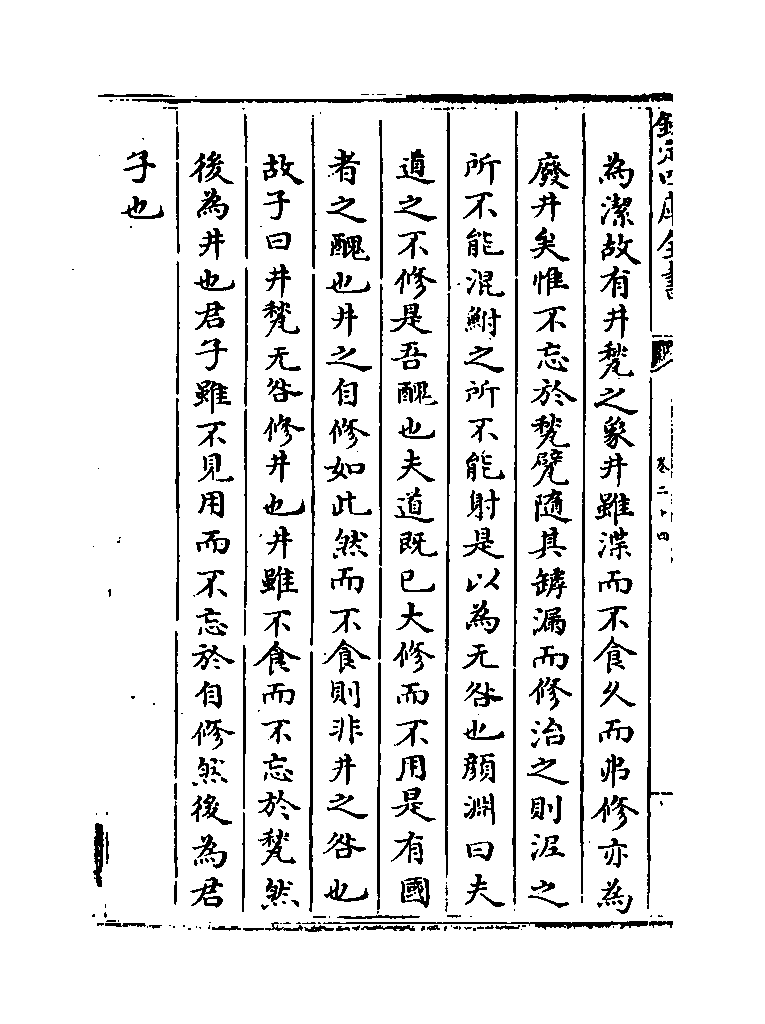 欽定四庫全書
卷二十四
為潔故有井甃之象井雖渫而不食久而弗修亦為
廢井矣惟不忘於甃甓隨其罅漏而修治之則泥之
所不能混鮒之所不能射是以為无咎也顔淵曰夫
道之不修是吾醜也夫道既已大修而不用是有國
者之醜也井之自修如此然而不食則非井之咎也
故子曰井甃无咎修井也井雖不食而不忘於甃然
後為井也君子雖不見用而不忘於自修然後為君
子也